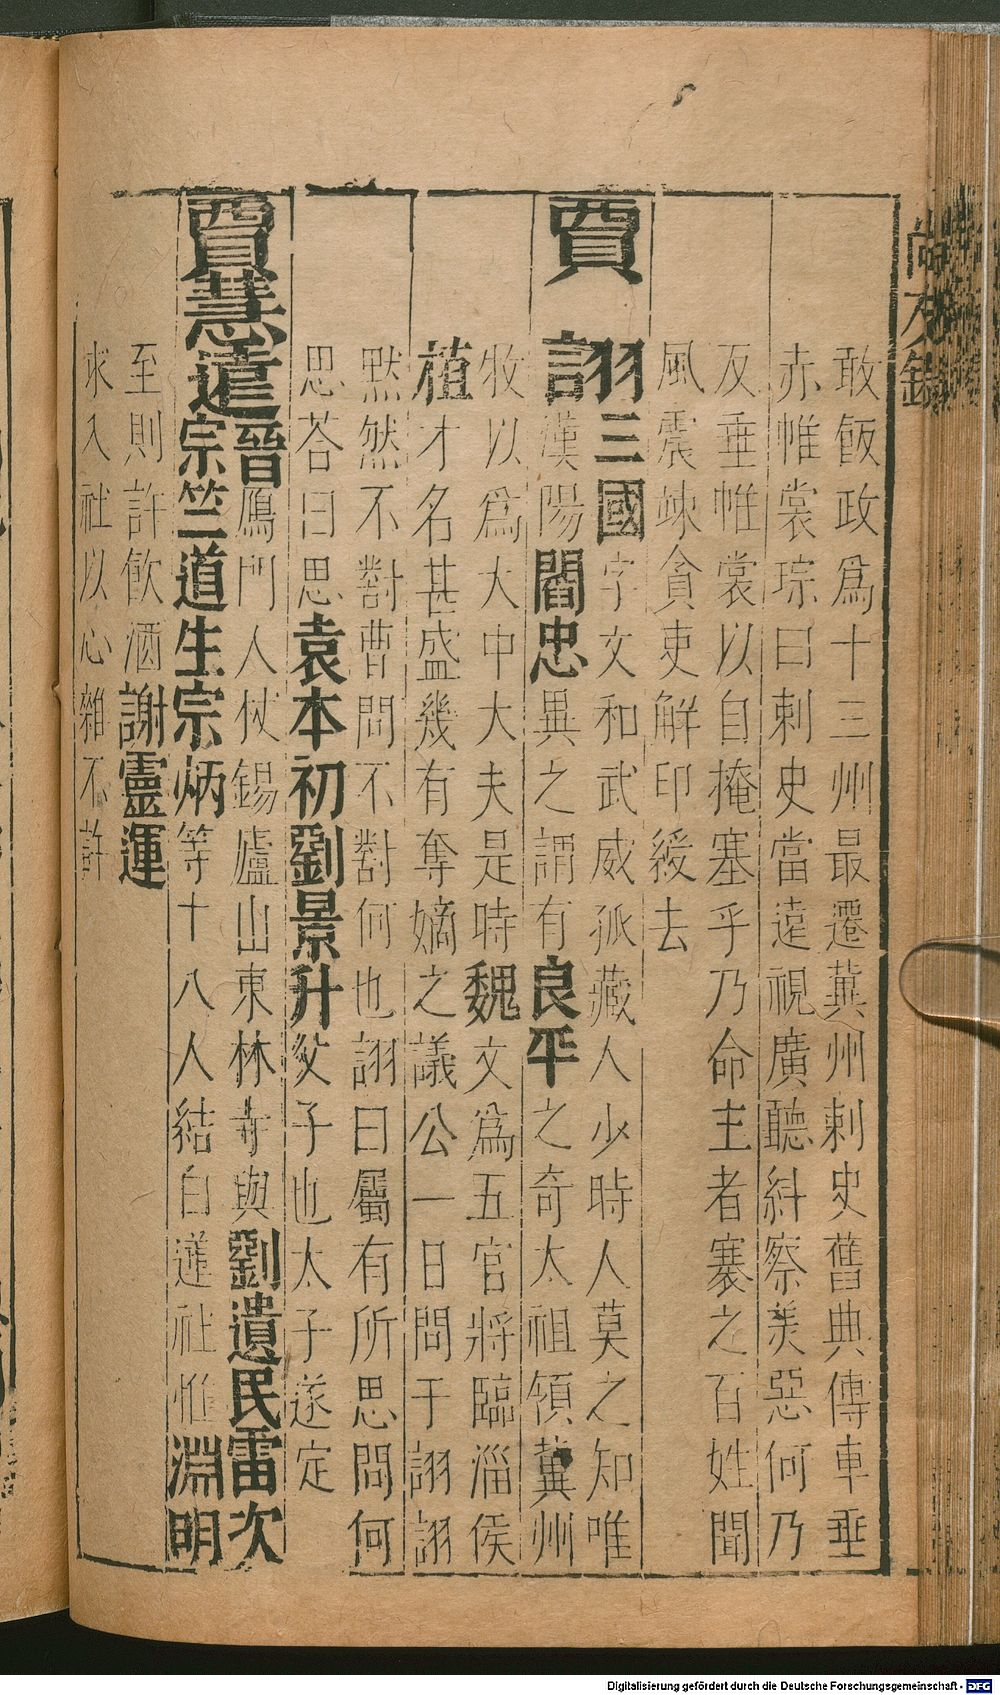 尚友錄
敢飯政爲十三州最遷冀州刺史舊典傳車垂
赤帷裳琮曰刺史當遠視廣聽糾察美惡何乃
反垂帷裳以自掩塞乎乃命主者褰之百姓聞
風震竦貪吏解印綬去
賈 詡三國字文和武威孤藏人少時人莫之知唯
漢陽閻忠異之謂有良平之奇太祖領冀州
牧以爲大中大夫是時魏文爲五官將臨淄侯
植才名甚盛幾有奪嫡之議公一日問于詡詡
默然不對曹問不對何也詡曰屬有所思問何
思荅曰思袁本初劉景升父子也太子遂定
賈慧遠晉鴈門人杖錫廬山東林寺與劉遺民雷次
宗竺道生宗炳等十八人結白蓮社惟淵明
至則許飲酒謝靈運
求入社以心雜不許
Digitalisierung gefördert durch die Deutsche Forschungsgemeinschaft - DFG